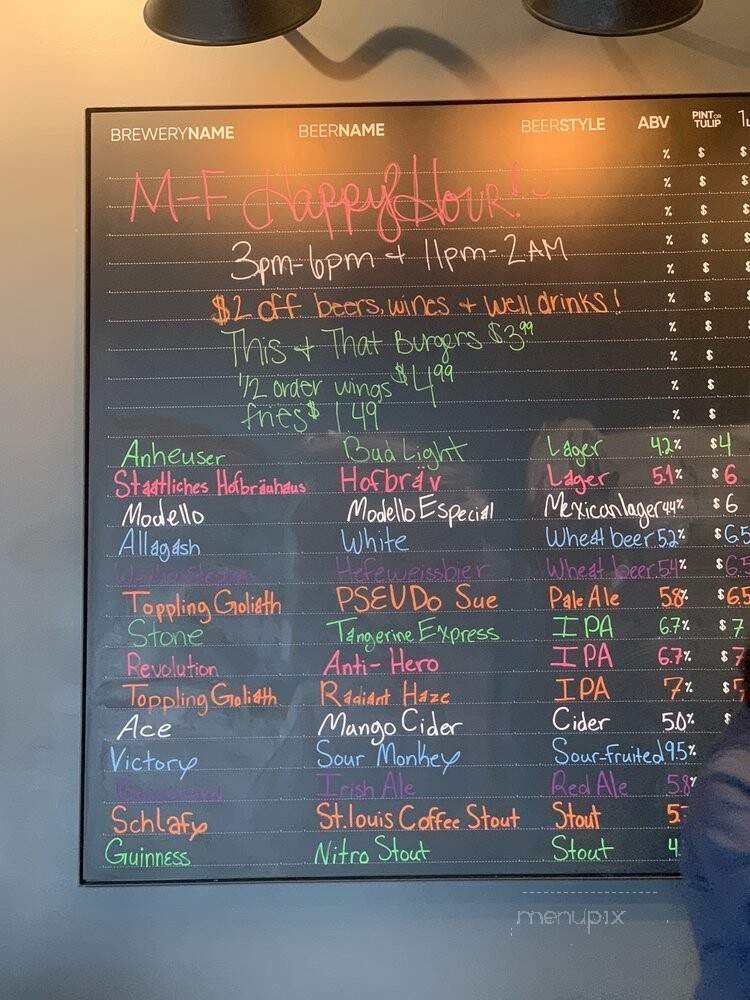 BREWERYNAME BEERNAME BEERSTYLE ABV PINT OR TULIP
% $ $
M-F Happy Hour! % $ $
% $ $
3pm-6pm + 11pm-2AM % $ $
% $ $
$2 off beers, wines + well drinks! % $ $
This + That Burgers $3.99 % $
% $
1/2 order wings $4.99 % $
fries $1.49 % $
Anheuser Bud Light Lager 4.2% $4
Staatliches Hofbräuhaus Hofbräv Lager 5.1% $6
Modello Modello Especial Mexican lager 4.4% $6
Allagash White Wheat beer 5.2% $6.5
Hefeweissbier Wheat beer 5.4% $6.5
Toppling Goliath PSEUDo Sue Pale Ale 5.8% $6.5
Stone Tangerine Express IPA 6.7% $7
Revolution Anti-Hero IPA 6.7% $7
Toppling Goliath Radiant Haze IPA 7% $
Ace Mango Cider Cider 5.0% $
Victory Sour Monkey Sour-Fruited 9.5%
Irish Ale Red Ale 5.8%
Schlafy St.louis Coffee Stout Stout 5.
Guinness Nitro Stout Stout 4.
menupix